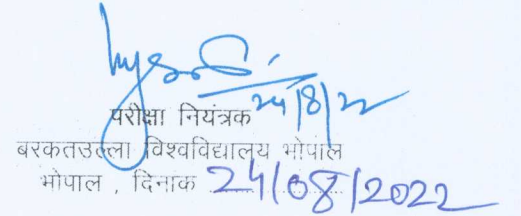 24/8/22
परीक्षा नियंत्रक
बरकतउल्ला विश्वविद्यालय भोपाल
भोपाल , दिनाक 24/08/2022